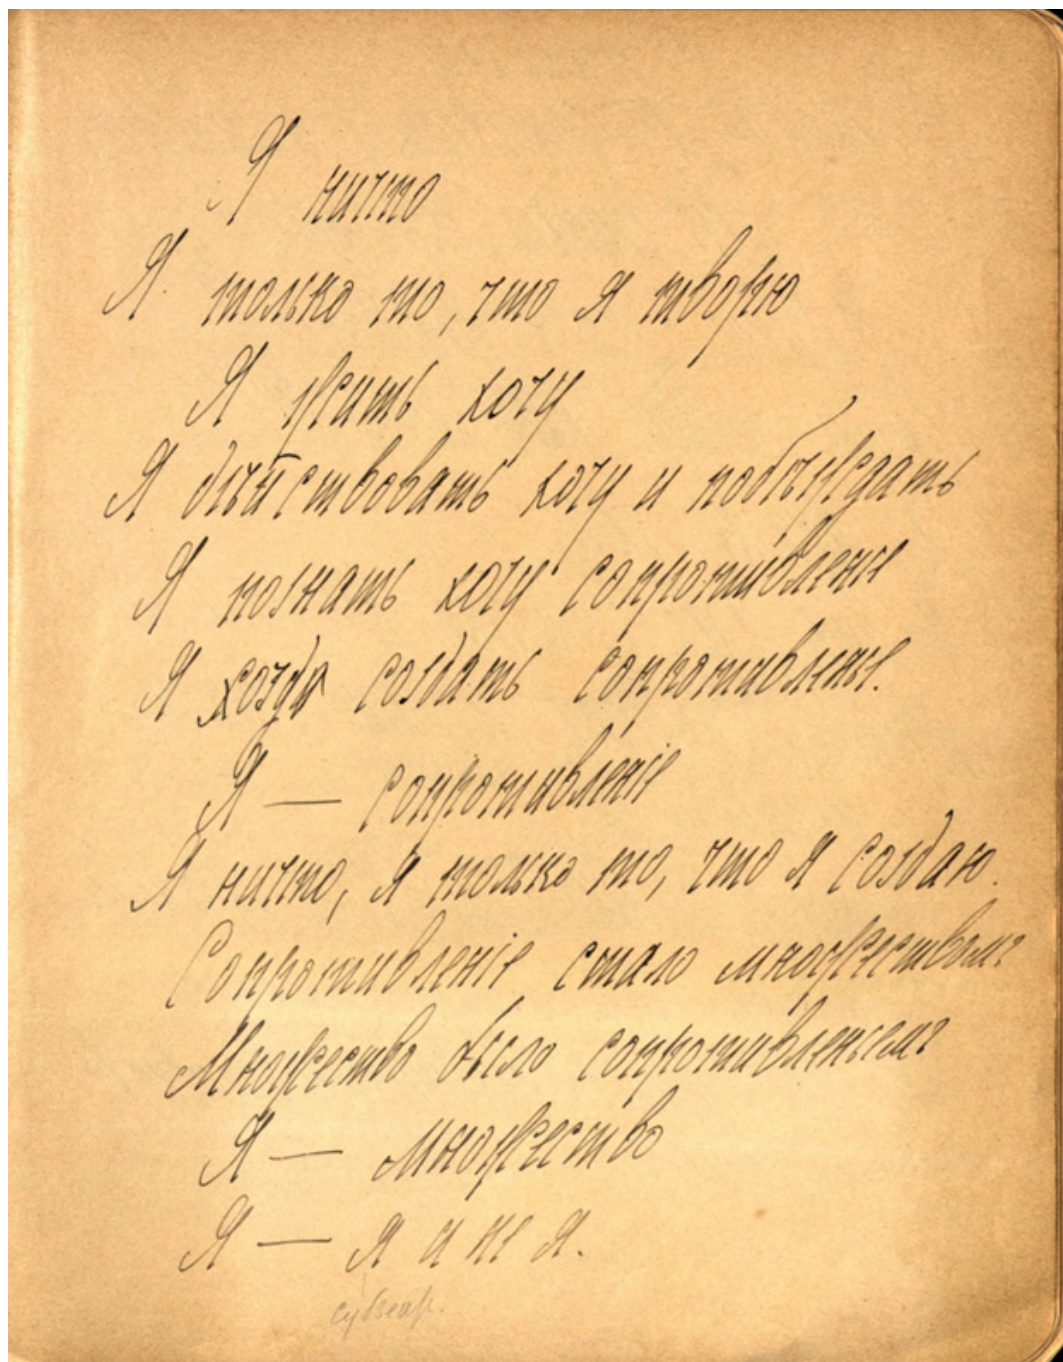 Я ничто
Я только то, что я творю
Я жить хочу
Я дѣйствовать хочу и побѣждать
Я познать хочу сопротивленье
Я создать сопротивленье.
Я — сопротивленіе
Я ничто, я только то, что я создаю.
Сопротивленіе стало множествомъ
Множество было сопротивленьемъ
Я — множество
Я — я и не я.